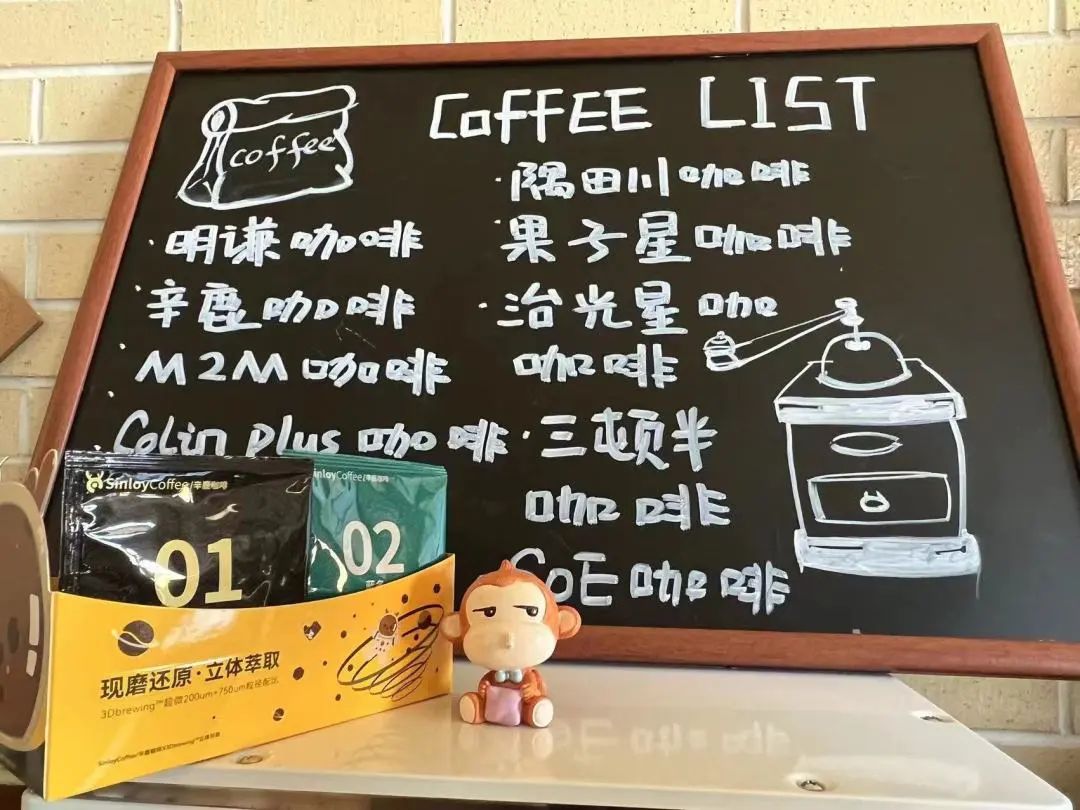 coffee
COFFEE LIST
·明谦咖啡
·辛鹿咖啡
·M2M咖啡
·Colin plus咖啡
·隅田川咖啡
果子星咖啡
·治光星咖
咖啡
·三顿半
咖啡
CoE咖啡
SinloyCoffee/辛鹿咖啡
01
SinloyCoffee/辛鹿咖啡
02
现磨还原·立体萃取
3Dbrewing™超微200um+750um粒径配比